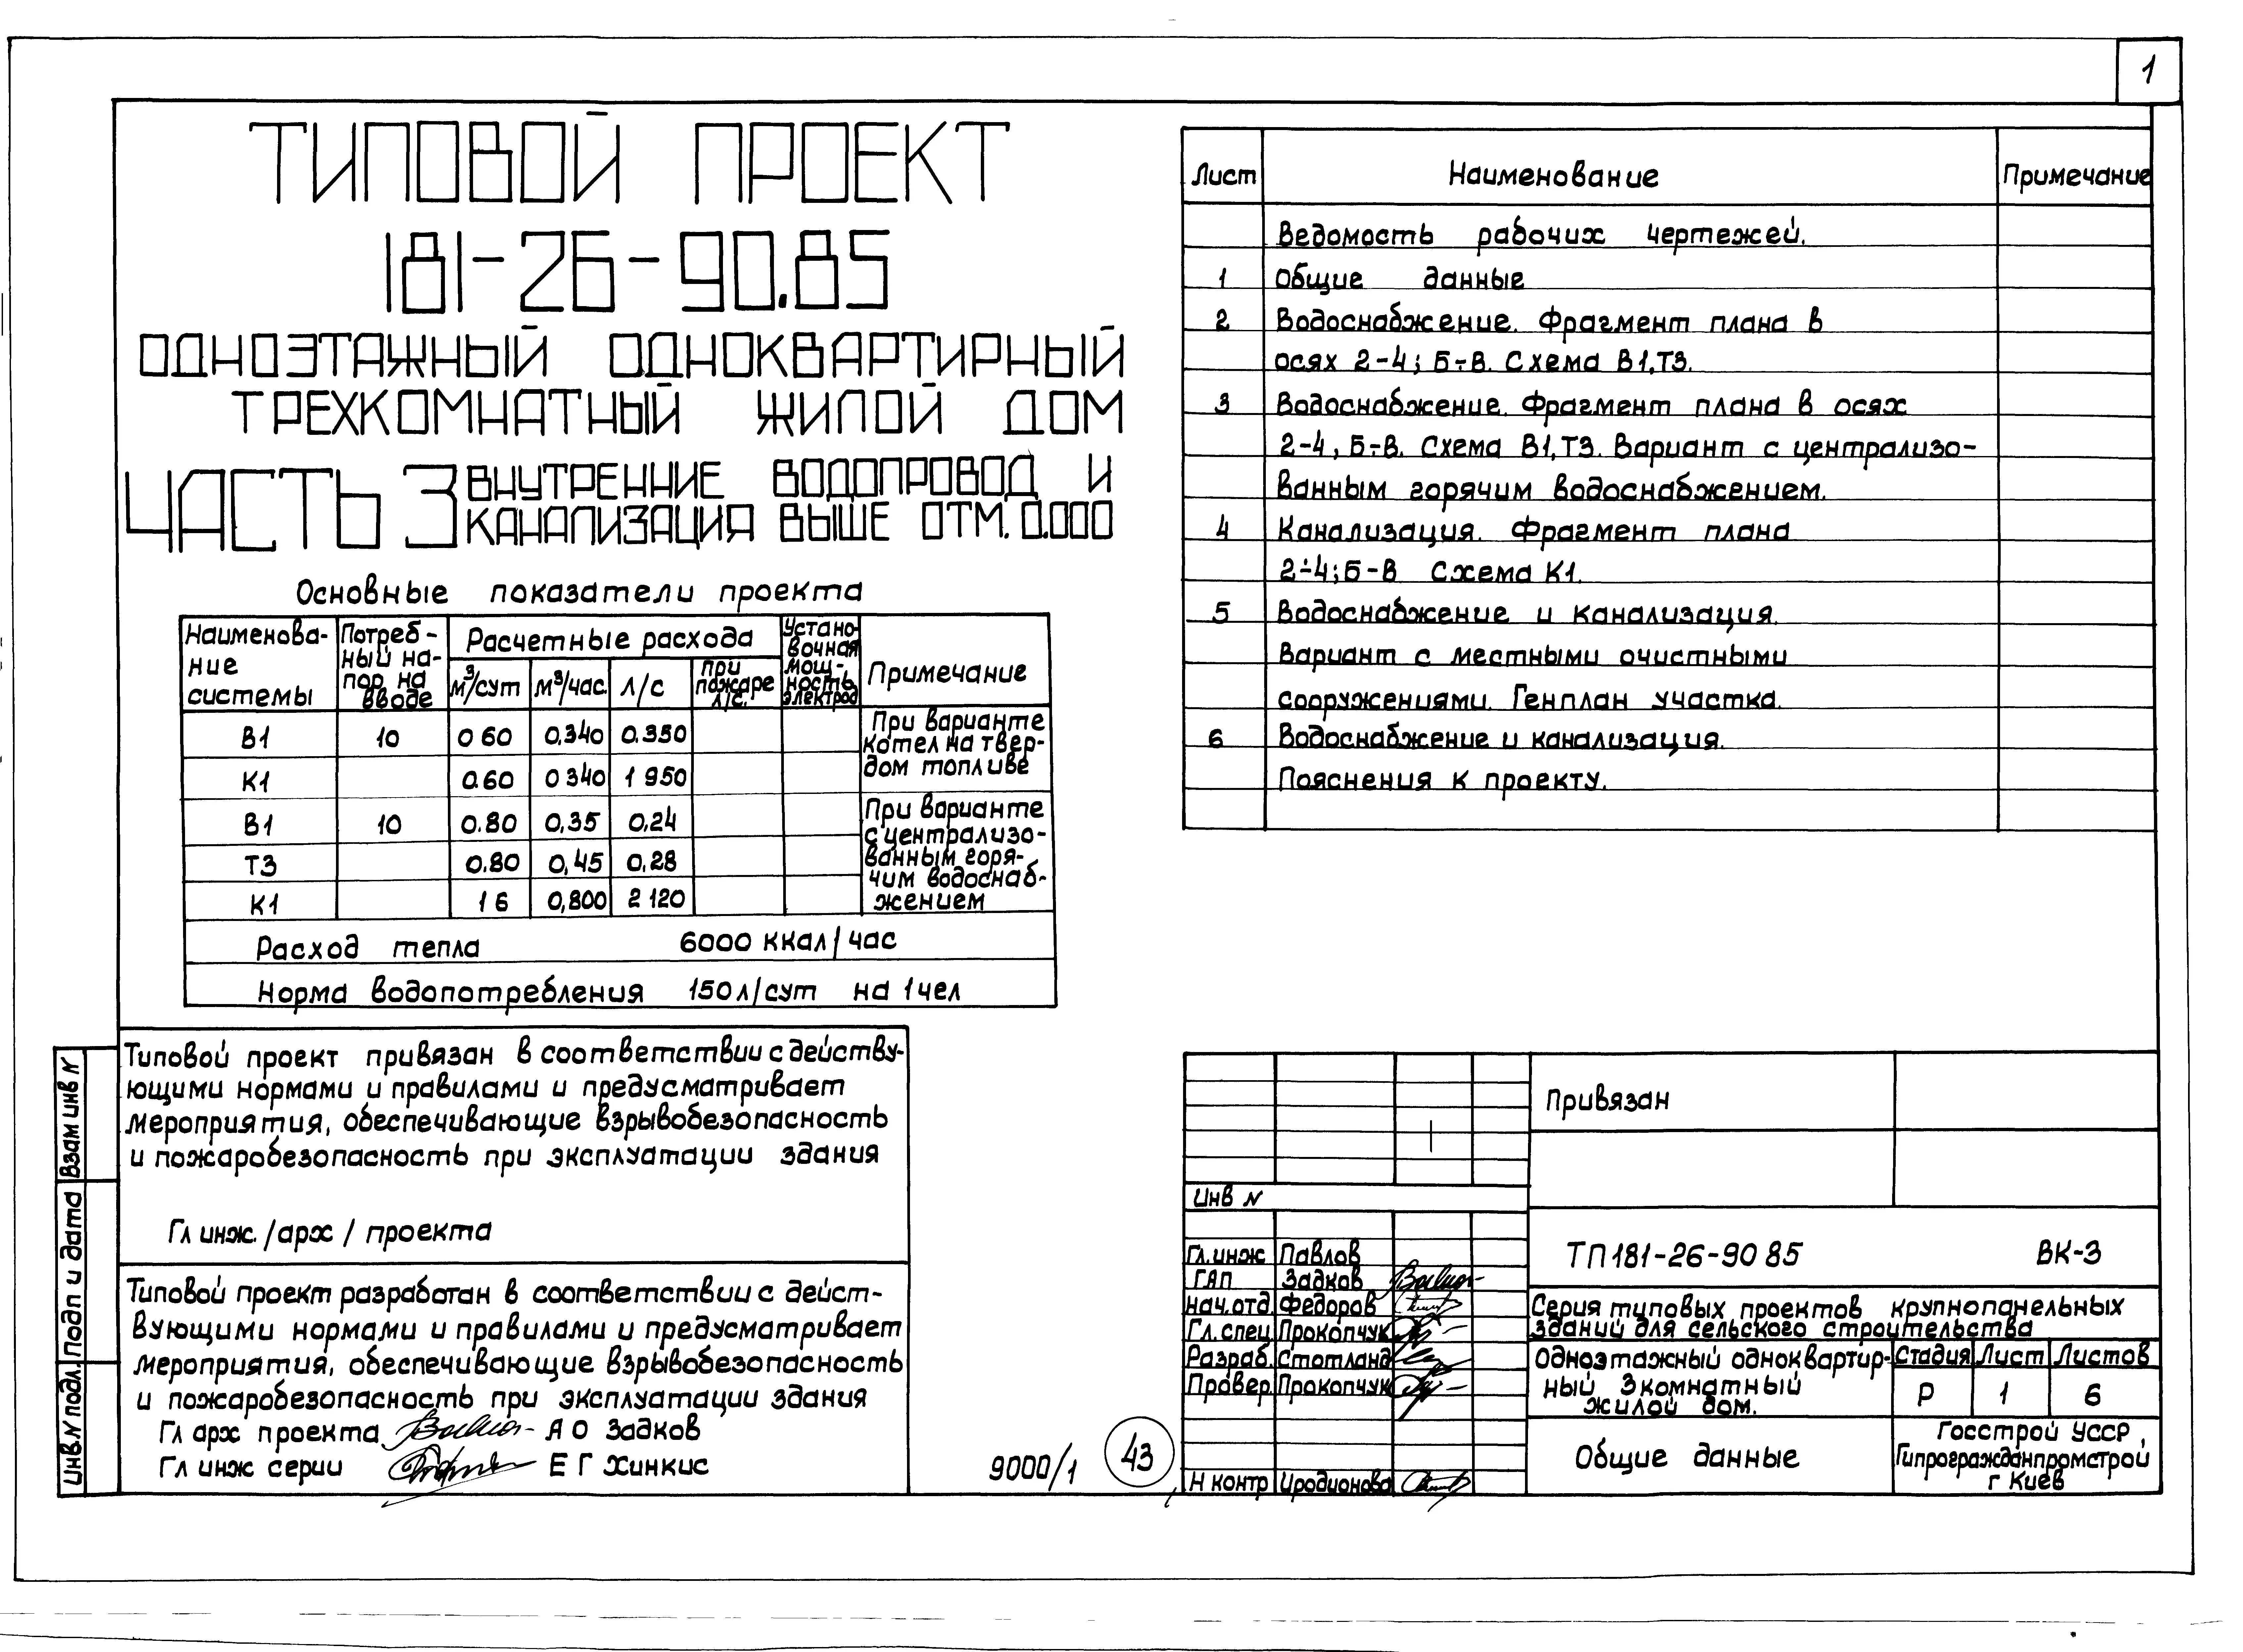 1
ТИПОВОЙ ПРОЕКТ
181-26-90.85
ОДНОЭТАЖНЫЙ ОДНОКВАРТИРНЫЙ
ТРЕХКОМНАТНЫЙ ЖИЛОЙ ДОМ
ЧАСТЬ 3 ВНУТРЕННИЕ ВОДОПРОВОД И
КАНАЛИЗАЦИЯ ВЫШЕ ОТМ. 0.000
Основные показатели проекта
Наименова-
ние
системы
Потреб-
ный на-
пор на
вводе
Расчетные расхода
м³/сут м³/час. л/с
при
пожаре
л/с.
Устано-
вочная
мощ-
ность
электрод
Примечание
В1 10 0 60 0,340 0.350
К1 0.60 0 340 1 950
При варианте
котел на твер-
дом топливе
В1 10 0.80 0,35 0,24
Т3 0.80 0,45 0,28
К1 1 6 0,800 2 120
При варианте
с централизо-
ванным горя-
чим водоснаб-
жением
Расход тепла 6000 ккал/час
Норма водопотребления 150 л/сут на 1 чел
Типовой проект привязан в соответствии с действу-
ющими нормами и правилами и предусматривает
мероприятия, обеспечивающие взрывобезопасность
и пожаробезопасность при эксплуатации здания
Гл инж. /арх / проекта
Типовой проект разработан в соответствии с дейст-
вующими нормами и правилами и предусматривает
мероприятия, обеспечивающие взрывобезопасность
и пожаробезопасность при эксплуатации здания
Гл арх проекта А О Задков
Гл инж серии Е Г Хинкис
Взам инв N
Подп и дата
Инв.N подл.
9000/1
43
Лист Наименование Примечание
Ведомость рабочих чертежей.
1 Общие данные
2 Водоснабжение. Фрагмент плана в
осях 2-4; Б-В. Схема В1,Т3.
3 Водоснабжение. Фрагмент плана в осях
2-4, Б-В. Схема В1,Т3. Вариант с централизо-
ванным горячим водоснабжением.
4 Канализация. Фрагмент плана
2-4; Б-В Схема К1.
5 Водоснабжение и канализация.
Вариант с местными очистными
сооружениями. Генплан участка.
6 Водоснабжение и канализация.
Пояснения к проекту.
Привязан
Инв N
Гл.инж Павлов
ГАП Задков
нач.отд Федоров
Гл.спец Прокопчук
Разраб. Стотланд
Провер. Прокопчук
Н контр Иродионова
ТП 181-26-90 85 ВК-3
Серия типовых проектов крупнопанельных
зданий для сельского строительства
Одноэтажный одноквартир-
ный 3комнатный
жилой дом.
Стадия Лист Листов
Р 1 6
Общие данные
Госстрой УССР,
Гипрогражданпромстрой
г Киев